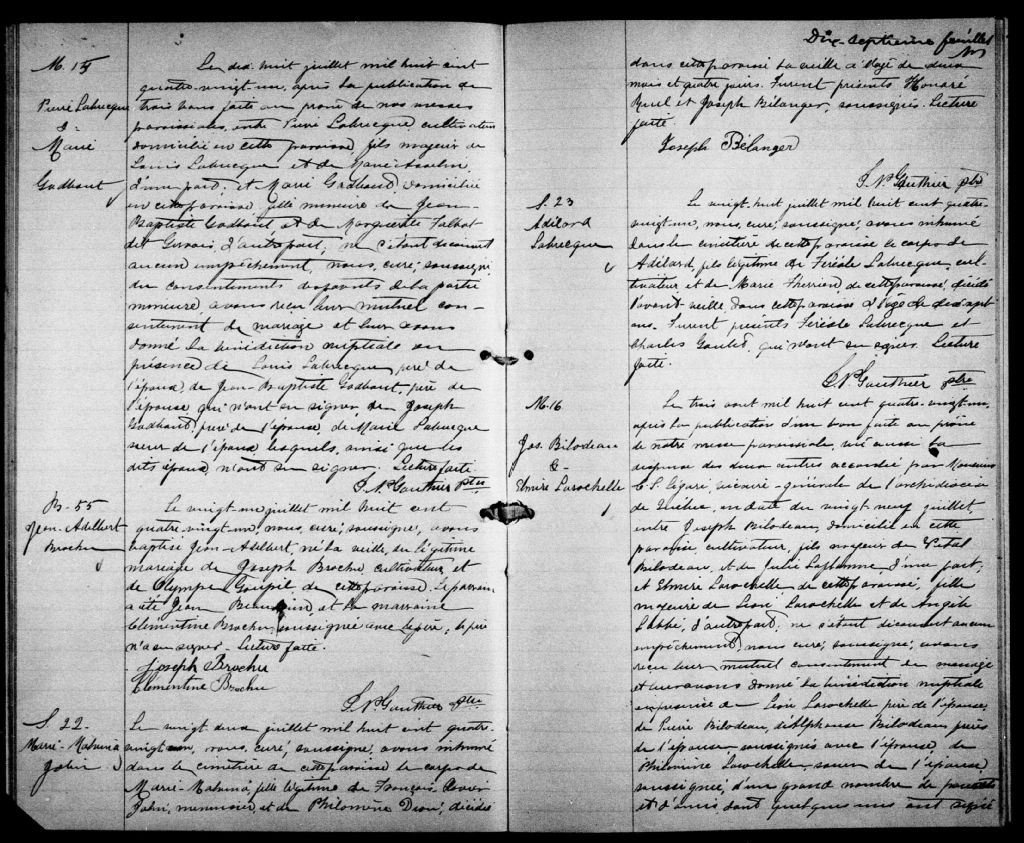 M. 15
Pierre Labrecque
&
Marie
Godbout
Le dix huit juillet mil huit cent
quatre-vingt-un, après la publication de
trois bans faite au prône de nos messes
paroissiales, entre Pierre Labrecque, cultivateur
domicilié en cette paroisse, fils majeur de
Louis Labrecque et de Marie Asselin,
d'une part; et Marie Godbout, domiciliée
en cette paroisse, fille mineure de Jean-
Baptiste Godbout, et de Marguerite Talbot
dit Gervais, d'autre part; ne s'étant découvert
aucun empêchement, nous, curé, soussigné,
du consentement des parents de la partie
mineure avons reçu leur mutuel con-
sentement de mariage et leur avons
donné la bénédiction nuptiale en
présence de Louis Labrecque, père de
l'époux, de Jean-Baptiste Godbout, père de
l'épouse, qui n'ont su signer, de Joseph
Godbout, de l'épouse, de Marie Labrecque
soeur de l'époux, lesquels, ainsi que les
dits époux n'ont su signer. Lecture faite.
J. N. Gauthier ptre
B. 55
Jean-Adelbert
Brochu
Le vingt-un juillet mil huit cent
quatre-vingt-un, nous, curé, soussigné, avons
baptisé Jean-Adelbert, né la veille, du légitime
mariage de Joseph Brochu cultivateur, et
de Olympe Goupil de cette paroisse. Le parrain
a été Jean et la marraine
Clémentine Brochu, soussignée avec le père, le
n'a su signer. Lecture faite.
Joseph Brochu
Clémentine Brochu
J. N. Gauthier Ptre
S. 22
Marie-Malvina
Jolin
Le vingt deux juillet mil huit cent quatre-
vingt-un, nous, curé, soussigné, avons inhumé
dans le cimetière de cette paroisse le corps de
Marie-Malvina, fille légitime de François Xavier
Jolin, menuisier et de Philomène Dion, décédée
Dix-septième feuillet
dans cette paroisse la veille à l'âge de deux
mois et quatre jours. Furent présents Honoré
Ruel et Joseph Bélanger, soussignés. Lecture
faite.
Joseph Bélanger
J. N. Gauthier ptre
S. 23
Adélard
Labrecque
Le vingt-huit juillet mil huit cent quatre-
vingt-un, nous, curé, soussigné, avons inhumé
dans le cimetière de cette paroisse le corps de
Adélard, fils légitime de Féréole Labrecque, cul-
tivateur et de Marie Therrien de cette paroisse, décédé
l'avant-veille, dans cette paroisse à l'âge de dix sept
ans. Furent présents Féréole Labrecque et
Charles, qui n'ont su signer. Lecture
faite.
J. N. Gauthier ptre
M. 16
Jos. Bilodeau
&
Elmire Larochelle
Le trois août mil huit cent quatre-vingt-un,
après la publication d'un ban faite au prône
de notre messe paroissiale, vu aussi la
dispense des deux autres accordée par Monsieur
C. E. Légaré, vicaire-général de l'archidiocèse
de Québec, en date du vingt neuf juillet,
entre Joseph Bilodeau, domicilié en cette
paroisse, cultivateur, fils majeur de Vital
Bilodeau, et de Julie Laflamme d'une part;
et Elmire Larochelle de cette paroisse, fille
majeure de Léon Larochelle et de Angèle
Labbé, d'autre part; ne s'étant découvert aucun
empêchement, nous, curé, soussigné, avons
reçu leur mutuel consentement de mariage
et leur avons donné la bénédiction nuptiale
en présence de Léon Larochelle père de l'épouse,
de Pierre Bilodeau, d'Alphonse Bilodeau frères
de l'époux soussignés avec l'épouse, de
Philomène Larochelle, soeur de l'épouse,
soussignée, d'un grand nombre de parents
et d'amis dont quelques uns ont signé